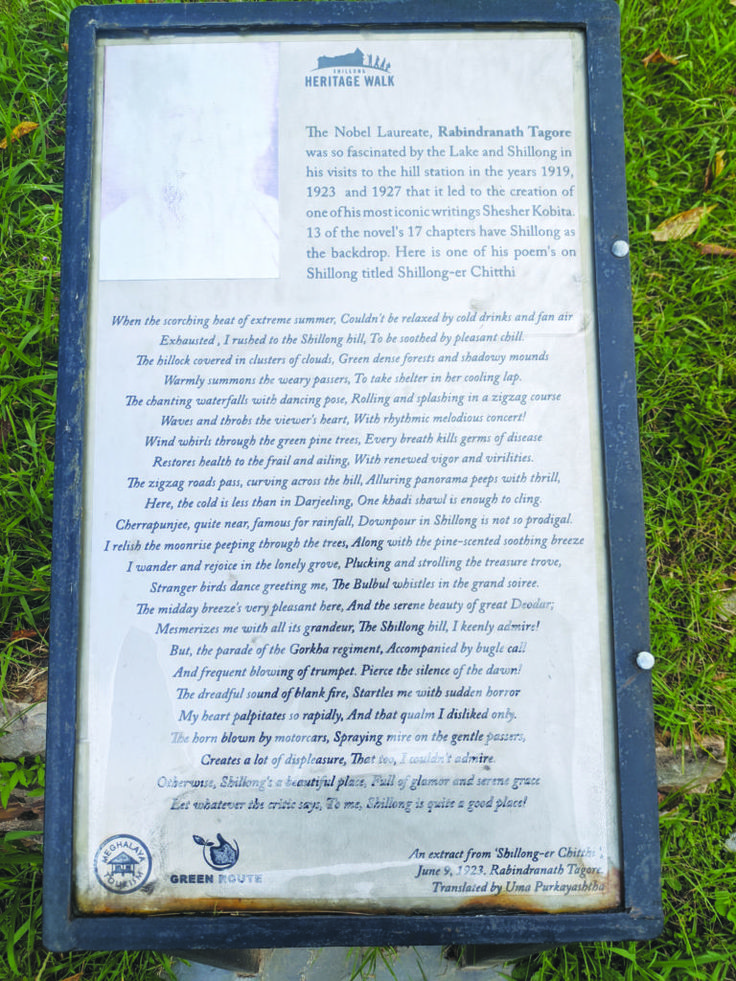 SHILLONG
HERITAGE WALK
The Nobel Laureate, Rabindranath Tagore
was so fascinated by the Lake and Shillong in
his visits to the hill station in the years 1919,
1923 and 1927 that it led to the creation of
one of his most iconic writings Shesher Kobita.
13 of the novel's 17 chapters have Shillong as
the backdrop. Here is one of his poem's on
Shillong titled Shillong-er Chitthi
When the scorching heat of extreme summer, Couldn't be relaxed by cold drinks and fan air
Exhausted , I rushed to the Shillong hill, To be soothed by pleasant chill.
The hillock covered in clusters of clouds, Green dense forests and shadowy mounds
Warmly summons the weary passers, To take shelter in her cooling lap.
The chanting waterfalls with dancing pose, Rolling and splashing in a zigzag course
Waves and throbs the viewer's heart, With rhythmic melodious concert!
Wind whirls through the green pine trees, Every breath kills germs of disease
Restores health to the frail and ailing, With renewed vigor and virilities.
The zigzag roads pass, curving across the hill, Alluring panorama peeps with thrill,
Here, the cold is less than in Darjeeling, One khadi shawl is enough to cling.
Cherrapunjee, quite near, famous for rainfall, Downpour in Shillong is not so prodigal.
I relish the moonrise peeping through the trees, Along with the pine-scented soothing breeze
I wander and rejoice in the lonely grove, Plucking and strolling the treasure trove,
Stranger birds dance greeting me, The Bulbul whistles in the grand soiree.
The midday breeze's very pleasant here, And the serene beauty of great Deodar;
Mesmerizes me with all its grandeur, The Shillong hill, I keenly admire!
But, the parade of the Gorkha regiment, Accompanied by bugle call
And frequent blowing of trumpet. Pierce the silence of the dawn!
The dreadful sound of blank fire, Startles me with sudden horror
My heart palpitates so rapidly, And that qualm I disliked only.
The horn blown by motorcars, Spraying mire on the gentle passers,
Creates a lot of displeasure, That too, I couldn't admire.
Otherwise, Shillong's a beautiful place, Full of glamor and serene grace
Let whatever the critic says, To me, Shillong is quite a good place!
MEGHALAYA
TOURISM
GREEN ROUTE
An extract from 'Shillong-er Chitthi',
June 9, 1923, Rabindranath Tagore
Translated by Uma Purkayashtha